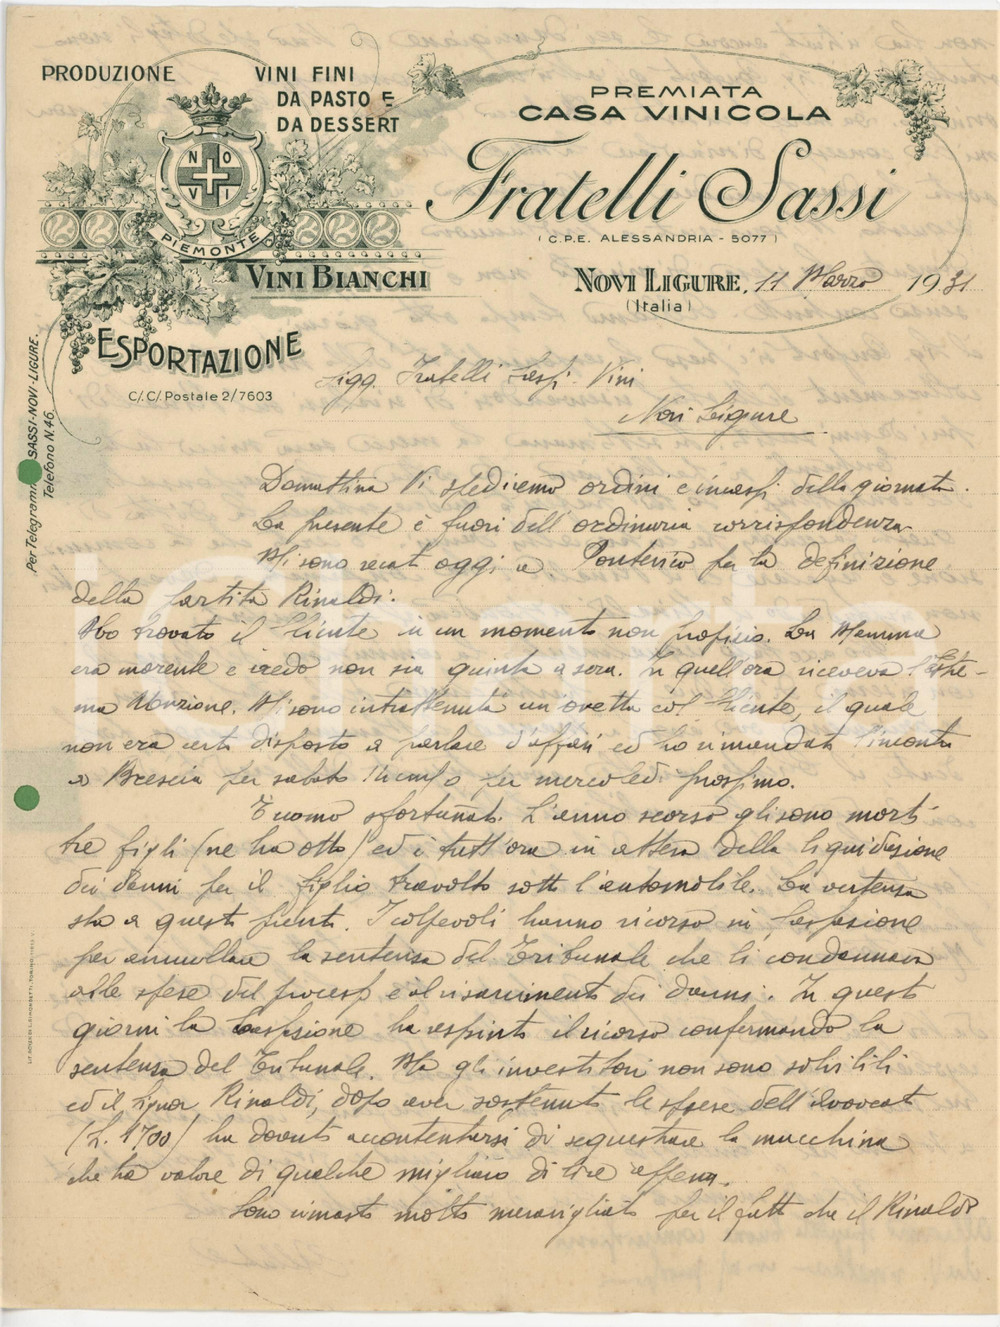 PRODUZIONE
VINI FINI
DA PASTO E
DA DESSERT
NOVI
PIEMONTE
VINI BIANCHI
ESPORTAZIONE
C/C. Postale 2/7603
PREMIATA
CASA VINICOLA
Fratelli Sassi
(C.P.E. ALESSANDRIA - 5077)
NOVI LIGURE, 11 Marzo 1931
(Italia)
Per Telegrammi SASSI-NOVI-LIGURE.
Telefono N. 46
Sigg. Fratelli Sassi Vini
Novi Ligure
Domattina Vi spediremo ordini e incassi della giornata.
La presente è fuori dell'ordinaria corrispondenza.
Mi sono recato oggi a per la definizione
della partita Rinaldi.
Ho trovato il Cliente in un momento non propizio. La Mamma
era morente e credo non sia giunta a sera. In quell'ora riceveva l'Estre-
ma Unzione. Mi sono intrattenuto un'oretta col Cliente, il quale
non era certo disposto a parlare d'affari ed ho rimandato l'incontro
a Brescia per sabato per mercoledì prossimo.
È uomo sfortunato. L'anno scorso gli sono morti
tre figli (ne ha otto) ed è tutt'ora in attesa della liquidazione
dei danni per il figlio travolto sotto l'automobile. La vertenza
sta a questi punti. I colpevoli hanno ricorso in Cassazione
per annullare la sentenza del Tribunale che li condannava
alle spese del processo e al risarcimento dei danni. In questi
giorni la Cassazione ha respinto il ricorso confermando la
sentenza del Tribunale. Ma gli investitori non sono solvibili
ed il Signor Rinaldi, dopo aver sostenuto le spese dell'avvocato
(L. 1700) ha dovuto accontentarsi di sequestrare la macchina
che ha valore di qualche migliaio di lire appena.
Sono rimasto molto meravigliato per il fatto che il Rinaldi
iCharta